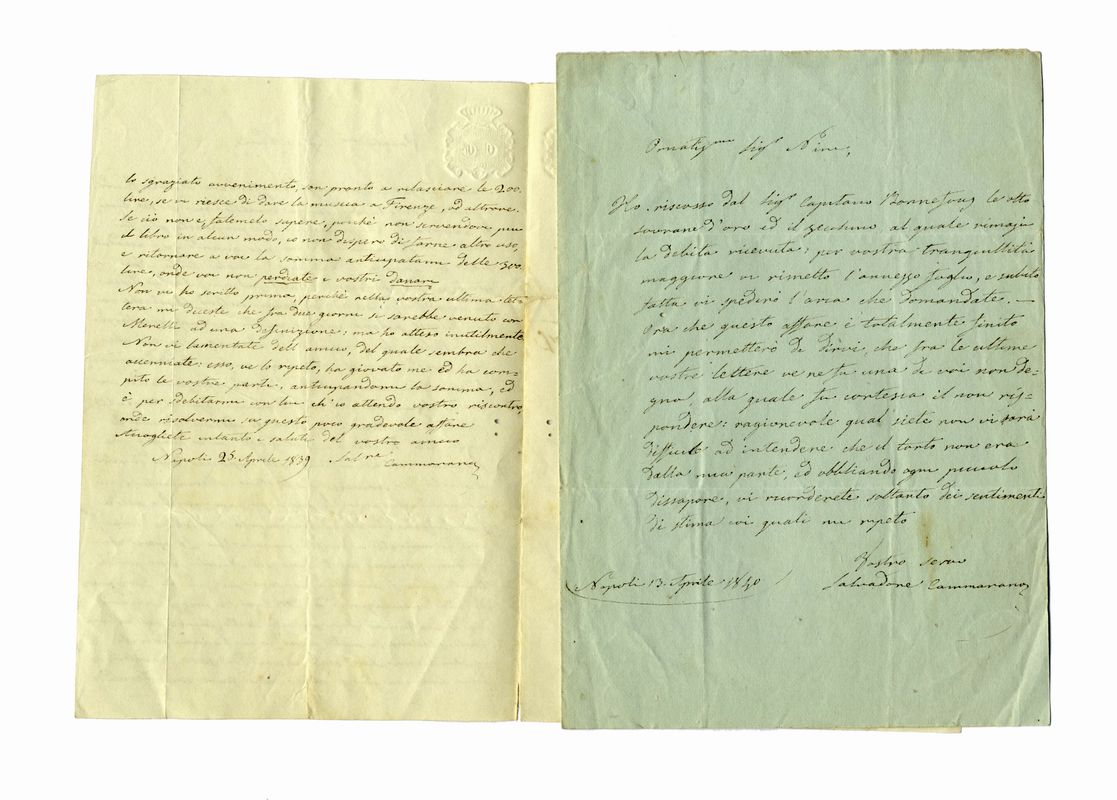 lo sgraziato avvenimento, son pronto a rilasciare le 200.
lire, se vi riesce di dare la musica a Firenze, od altrove.
Se ciò non è, fatemelo sapere, perchè non servendovi più
il libro in alcun modo, io non dispero di farne altro uso,
e ritornare a voi la somma anticipatami delle 300.
lire, onde voi non perdiate i vostri danari
Non vi ho scritto prima, perchè nella vostra ultima let=
tera mi diceste che fra due giorni si sarebbe venuto con
Merelli ad una definizione: ma ho atteso inutilmente
Non vi lamentate dell'amico, del quale sembra che
accenniate: esso, ve lo ripeto, ha giovato me ed ha com=
pito le vostre parti, anticipandomi la somma, ed
è per isdebitarmi con lui ch'io attendo vostro riscontro,
onde risolvermi a questo poco gradevole affare
Accogliete intanto i saluti del vostro amico
Napoli 25. Aprile 1839 Sal.re
Cammarano
Ornatis.mo Sig.r Nini,
Ho riscosso dal Sig.r Capitano le otto
sovrane d'oro ed il zecchino, al quale rimasi
la debita ricevuta: per vostra tranquillità
maggiore vi rimetto l'annesso foglio, e subito
fatta vi spedirò l'aria che domandate. —
Ora che questo affare è totalmente finito
mi permetterò di dirvi che fra le ultime
vostre lettere ve ne fu una di voi non de=
gna, alla quale fu cortesia il non ris=
pondere: ragionevole qual siete non vi sarà
difficile ad intendere che il torto non era
dalla mia parte, ed obbliando ogni piccolo
dissapore, vi ricorderete soltanto dei sentimenti
di stima coi quali mi ripeto
Vostro servo
Napoli 13. Aprile 1840 Salvadore Cammarano